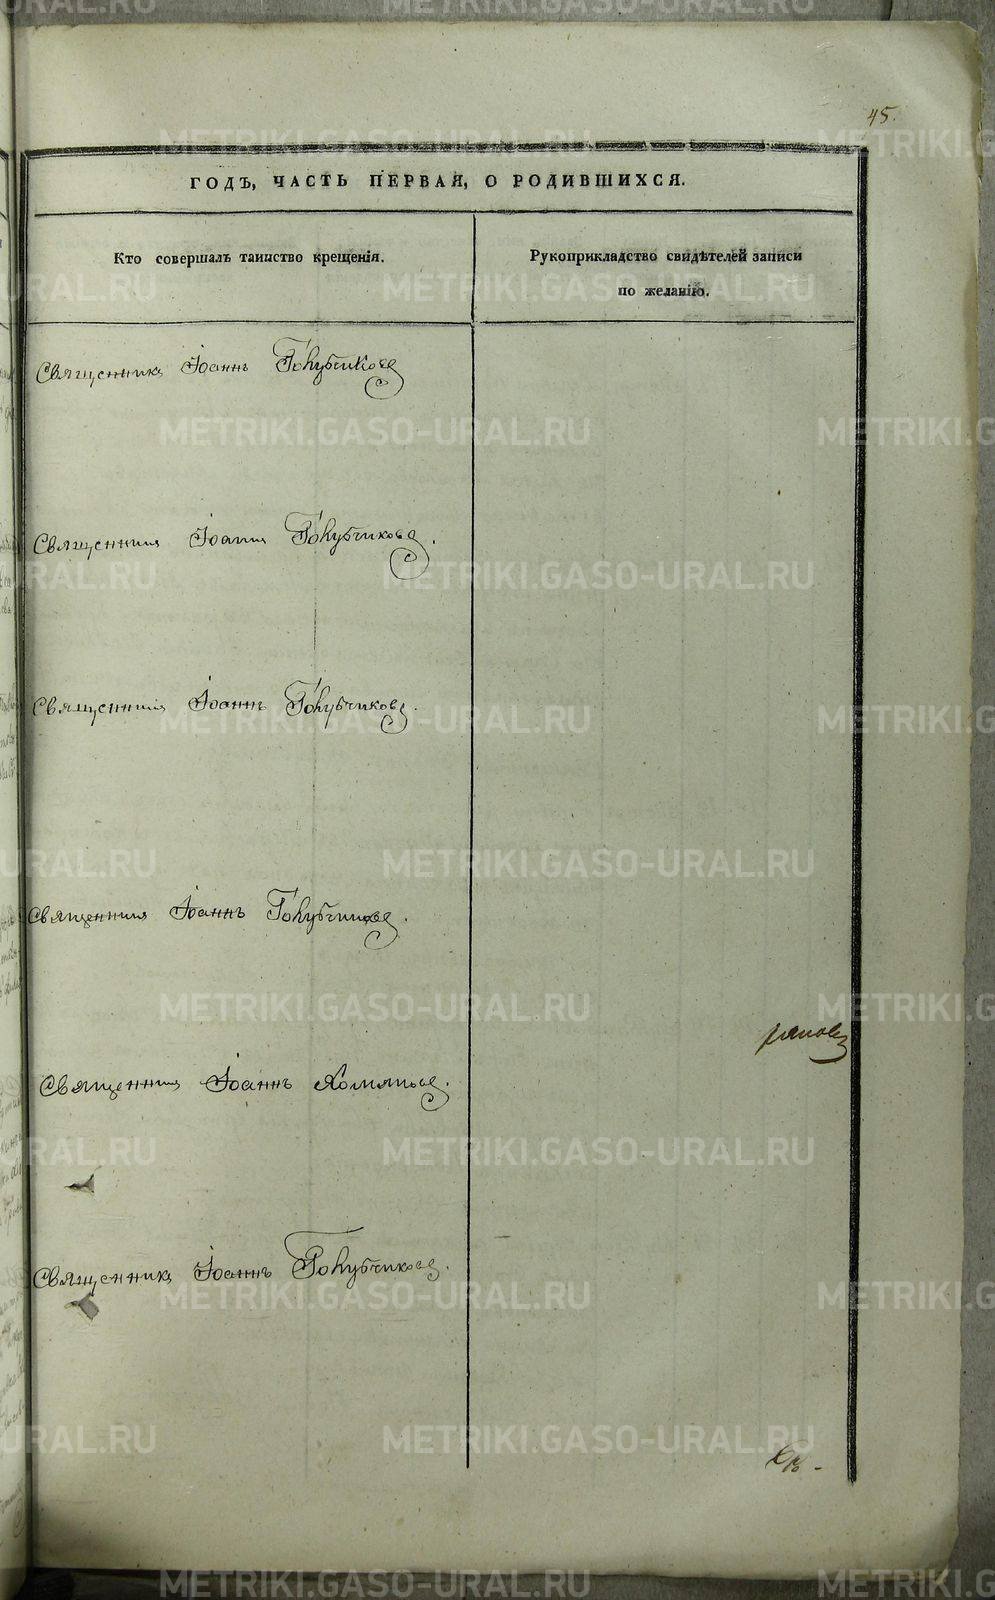 45.
ГОДЪ, ЧАСТЬ ПЕРВАЯ, О РОДИВШИХСЯ.
Кто совершалъ таинство крещенія.
Рукоприкладство свидѣтелей записи
по желанію.
Священникъ Іоаннъ Голубчиковъ
Священникъ Іоаннъ Голубчиковъ.
Священникъ Іоаннъ Голубчиковъ.
Священникъ Іоаннъ Голубчиковъ.
Священникъ Іоаннъ Хомяковъ.
Священникъ Іоаннъ Голубчиковъ.
METRIKI.GASO-URAL.RU